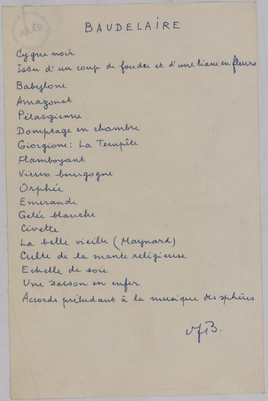 BAUDELAIRE
Cygne noir
Issu d'un coup de foudre et d'une liane en fleurs
Babylone
Amazonat
Pélasgienne
Domptage en chambre
Giorgione: La Tempête
Flamboyant
Vieux bourgogne
Orphée
Emeraude
Gelée blanche
Civette
La belle vieille (Maynard)
Culte de la mante religieuse
Echelle de soie
Une saison en enfer
Accords préludant à la musique des sphères